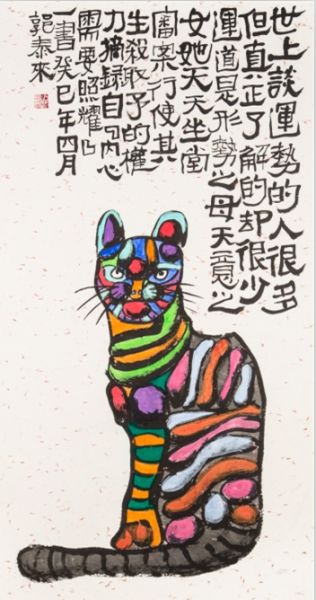 世上談運勢的人很多
但真正了解的却很少
運道是形勢之母天意之
女她天天坐堂
審案行使其
生殺取予的權
力摘錄自《内心
需要照耀》
一書癸巳年四月
郭泰來